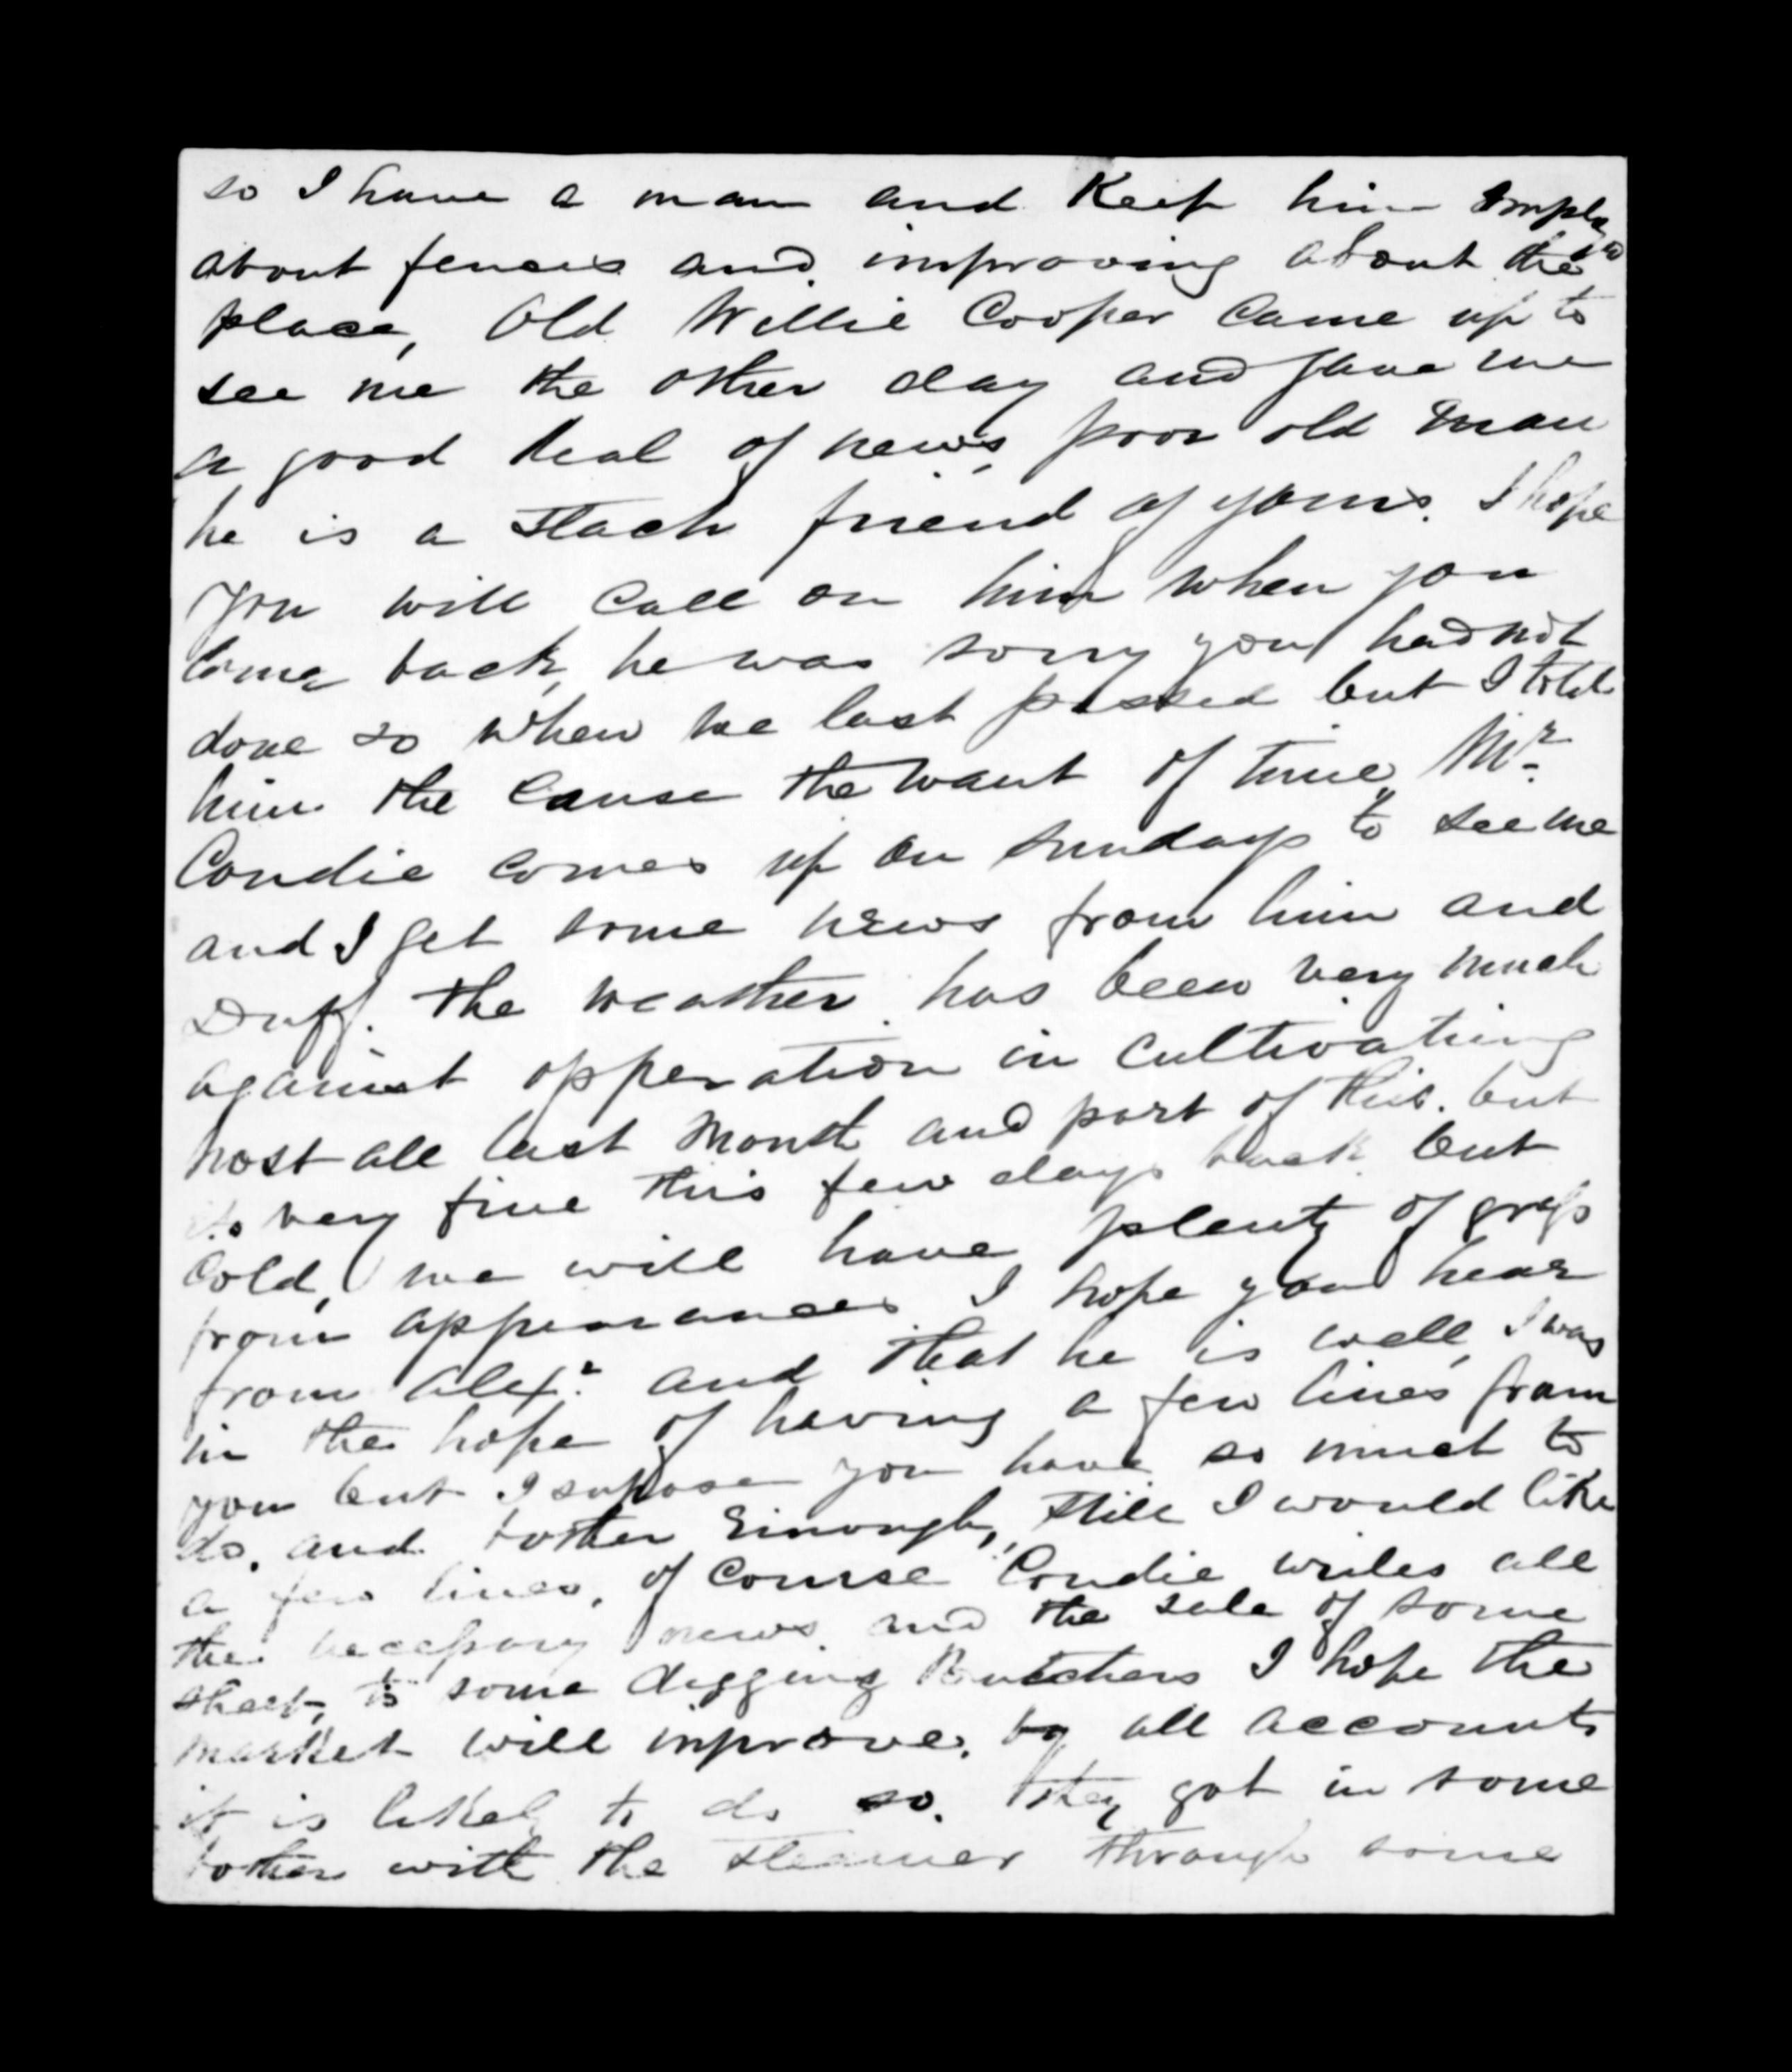 so I have a man and Keep him Employed
about fences and improving about the
place, Old Willie Cooper Came up to
see me the other day and gave me
a good deal of news, poor old man
he is a stach friend of yours. I hope
you will Call on him when you
Come back, he was sorry you had not
done so when we last passed but I told
him the Cause the want of time, Mr
Condie comes up on Sundays to see me
and I get some news from him and
Duff. The weather has been very much
against opperation in Cultivating
most all last Month and part of this. but
its very fine this few days back but
Cold, we will have plenty of grass
from appearances I hope you hear
from Alexr. and that he is well, I was
in the hope of having a few lines from
you but I supose you have so much to
do. and bother Einough, still I would like
a few lines, of Course Condie writes all
the necessary news and the sale of some
sheep, to some digging Butchers I hope the
market will inprove. by all accounts
it is likely to do so. they got in some
bother with the steamer through some